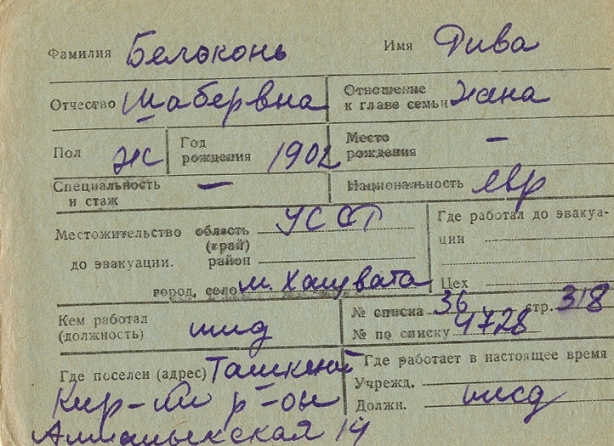 Фамилия Белоконь Имя Рива
Отчество Шабервна Отношение к главе семьи жена
Пол ж Год рождения 1902 Место рождения —
Специальность и стаж — Национальность евр
Местожительство до эвакуации. область (край) УССР район город, село м. Хащувата
Где работал до эвакуации
Цех
Кем работал (должность) ижд
№ списка 36 стр. 318
№ по списку 9728
Где поселен (адрес) Ташкент
Кир-ий р-он
Алмалыкская 14
Где работает в настоящее время
Учрежд.
Должн. ижд